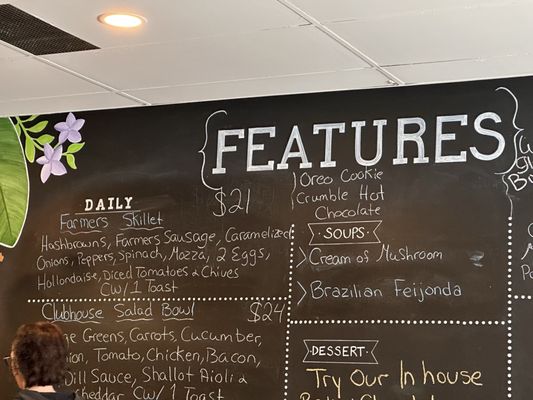 FEATURES
DAILY
Farmers Skillet $21
Hashbrowns, Farmers Sausage, Caramelized
Onions, Peppers, Spinach, Mozza, 2 Eggs,
Hollondaise, Diced Tomatoes & Chives
Cw/ 1 Toast
Clubhouse Salad Bowl $24
Greens, Carrots, Cucumber,
Tomato, Chicken, Bacon,
Dill Sauce, Shallot Aioli &
Cw/ 1 Toast
Oreo Cookie
Crumble Hot
Chocolate
SOUPS
Cream of Mushroom
Brazilian Feijonda
DESSERT
Try Our In house